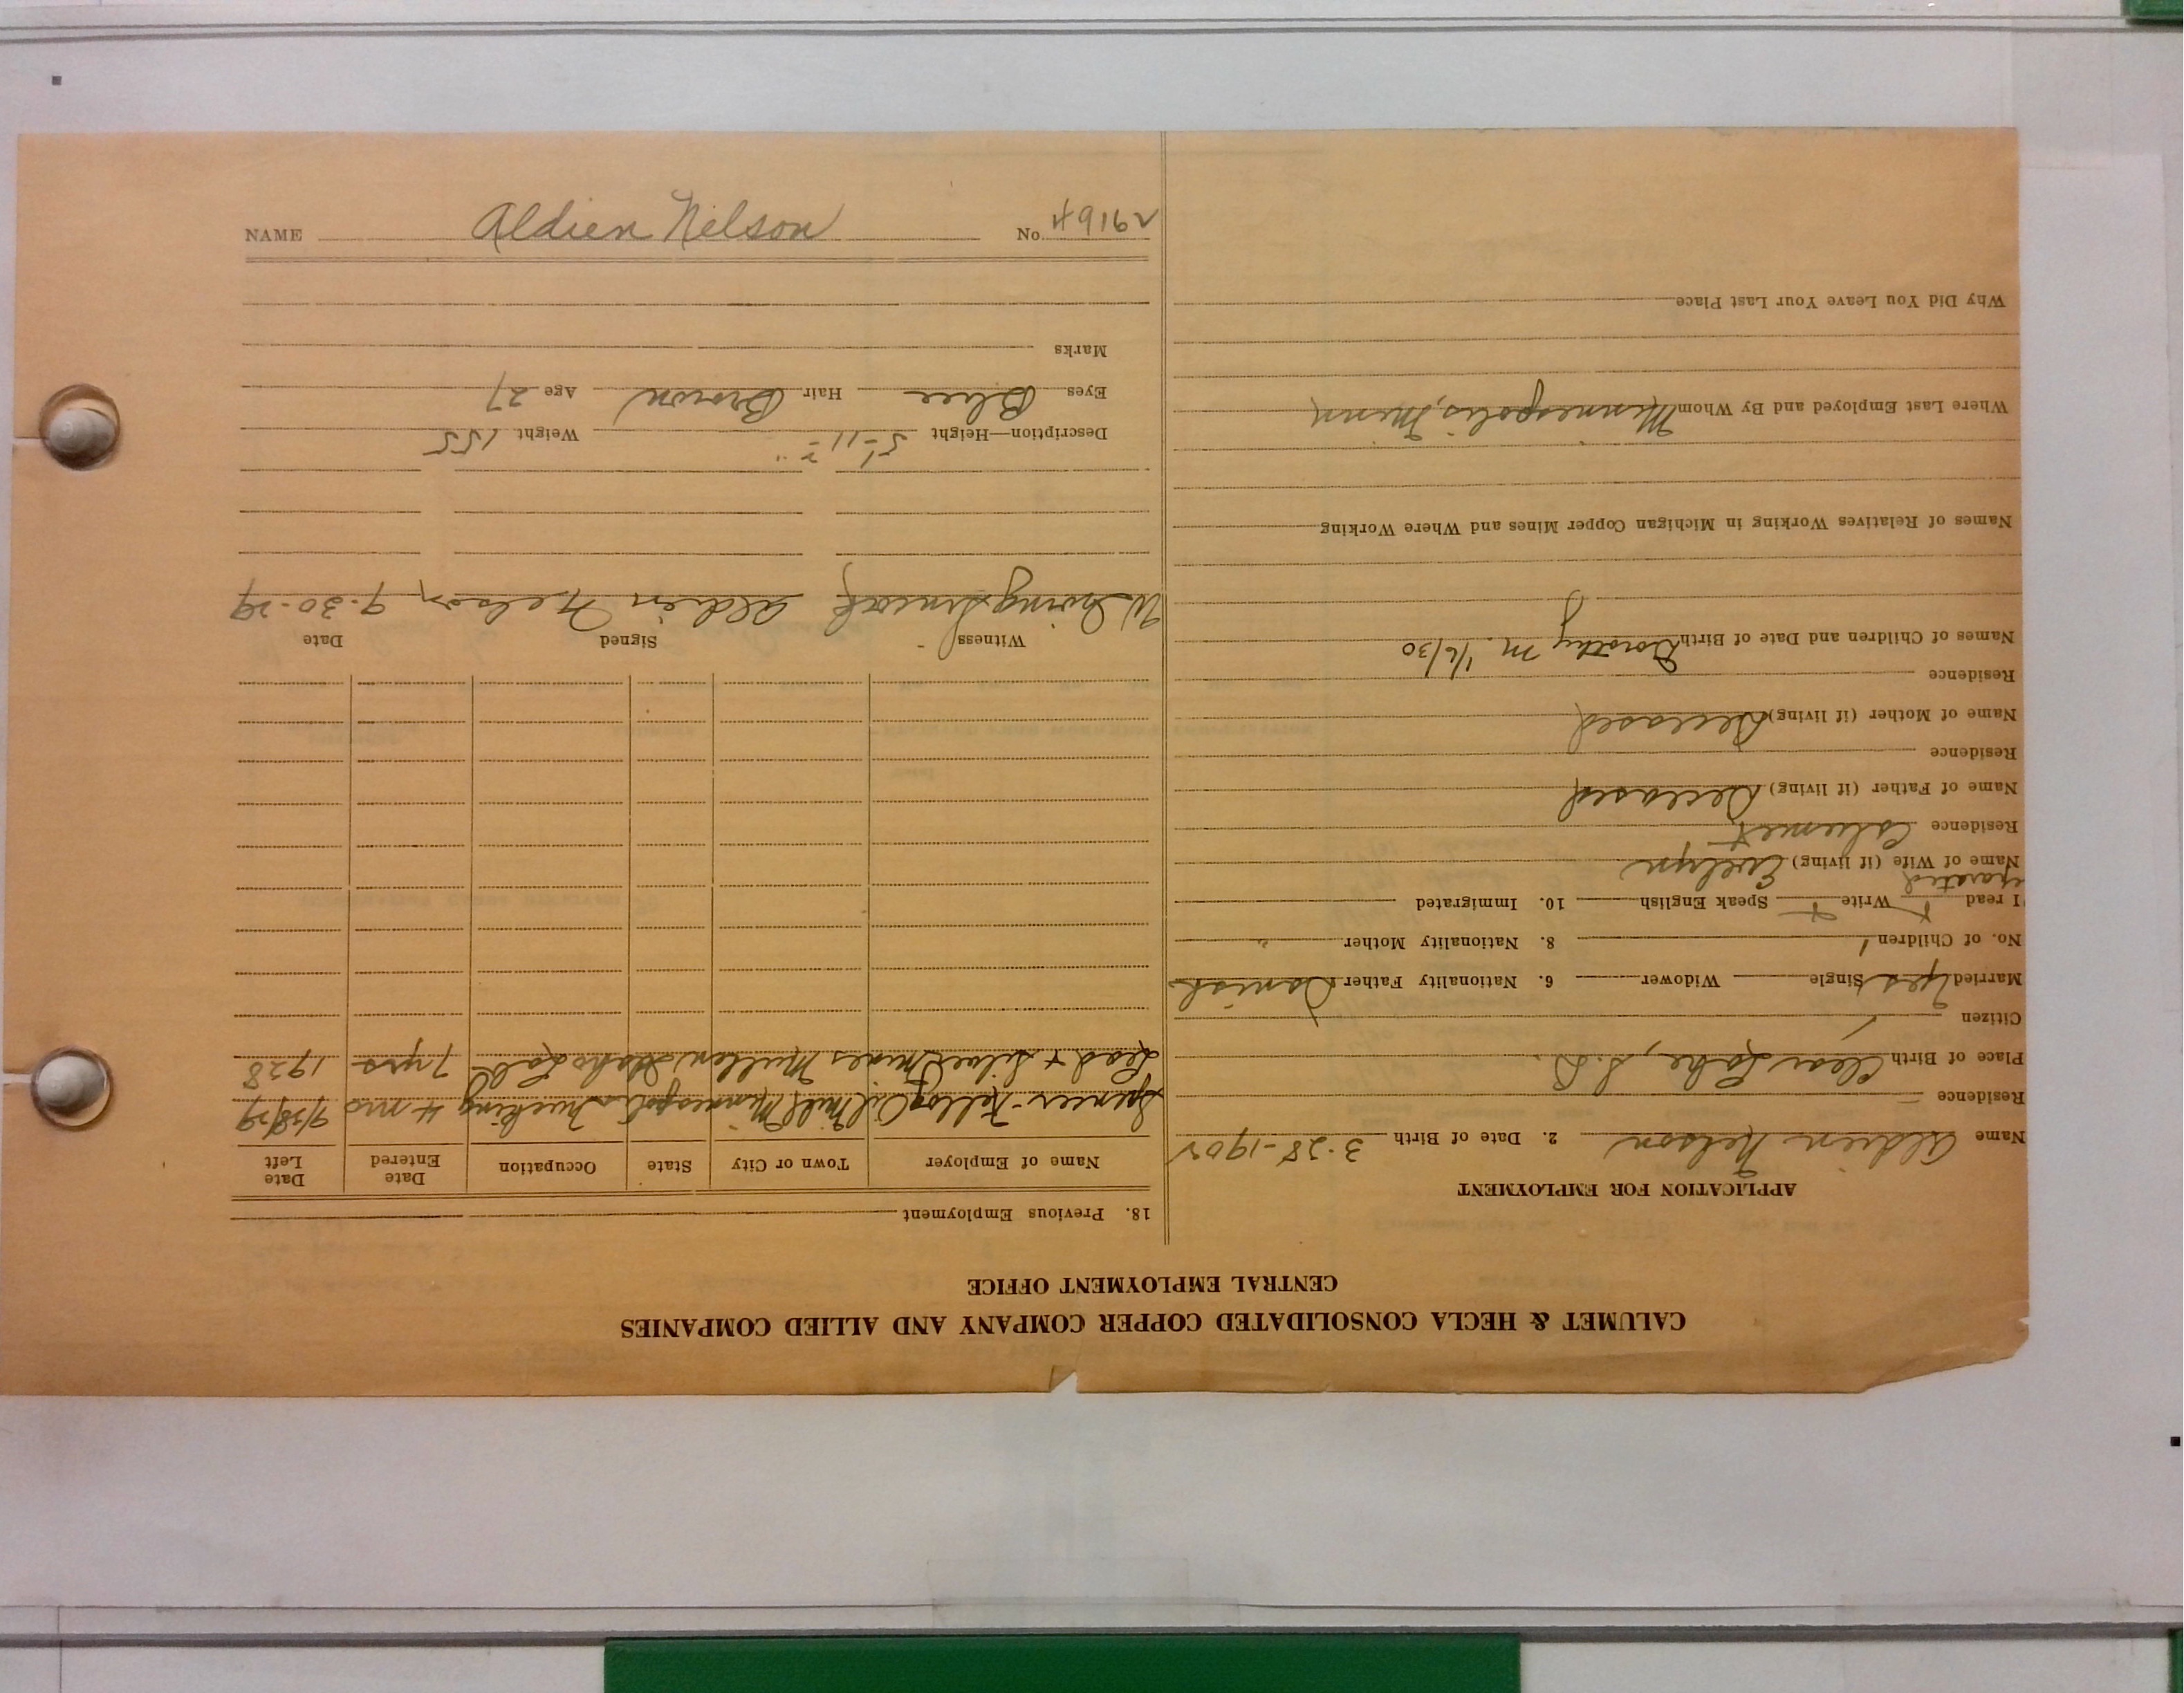 CALUMET & HECLA CONSOLIDATED COPPER COMPANY AND ALLIED COMPANIES
CENTRAL EMPLOYMENT OFFICE
APPLICATION FOR EMPLOYMENT
Name Aldien Nelson 2. Date of Birth 3-28-1902
Residence
Place of Birth Clear Lake, S.D.
Citizen
Married Yes Single Widower 6. Nationality Father Danish
No. of Children 1 8. Nationality Mother "
I read Write Speak English 10. Immigrated
Name of Wife (if living) Evelyn
Residence Calumet
Name of Father (if living) Deceased
Residence
Name of Mother (if living) Deceased
Residence
Names of Children and Date of Birth Dorothy M. 1/6/30
Names of Relatives Working in Michigan Copper Mines and Where Working
Where Last Employed and By Whom Minneapolis, Minn
Why Did You Leave Your Last Place
18. Previous Employment
Name of Employer Town or City State Occupation Date Entered Date Left
Spencer-Kellog Oil Mill Minneapolis Trucking 4 mos 9/28/29
Lead + Silver Mines Mullan Idaho Lab 7 yrs 1928
Witness Signed Date
W. Irving Aldien Nelson 9-30-29
Description—Height 5'-11 Weight 155
Eyes Blue Hair Brown Age 27
Marks
NAME Aldien Nelson No 49162